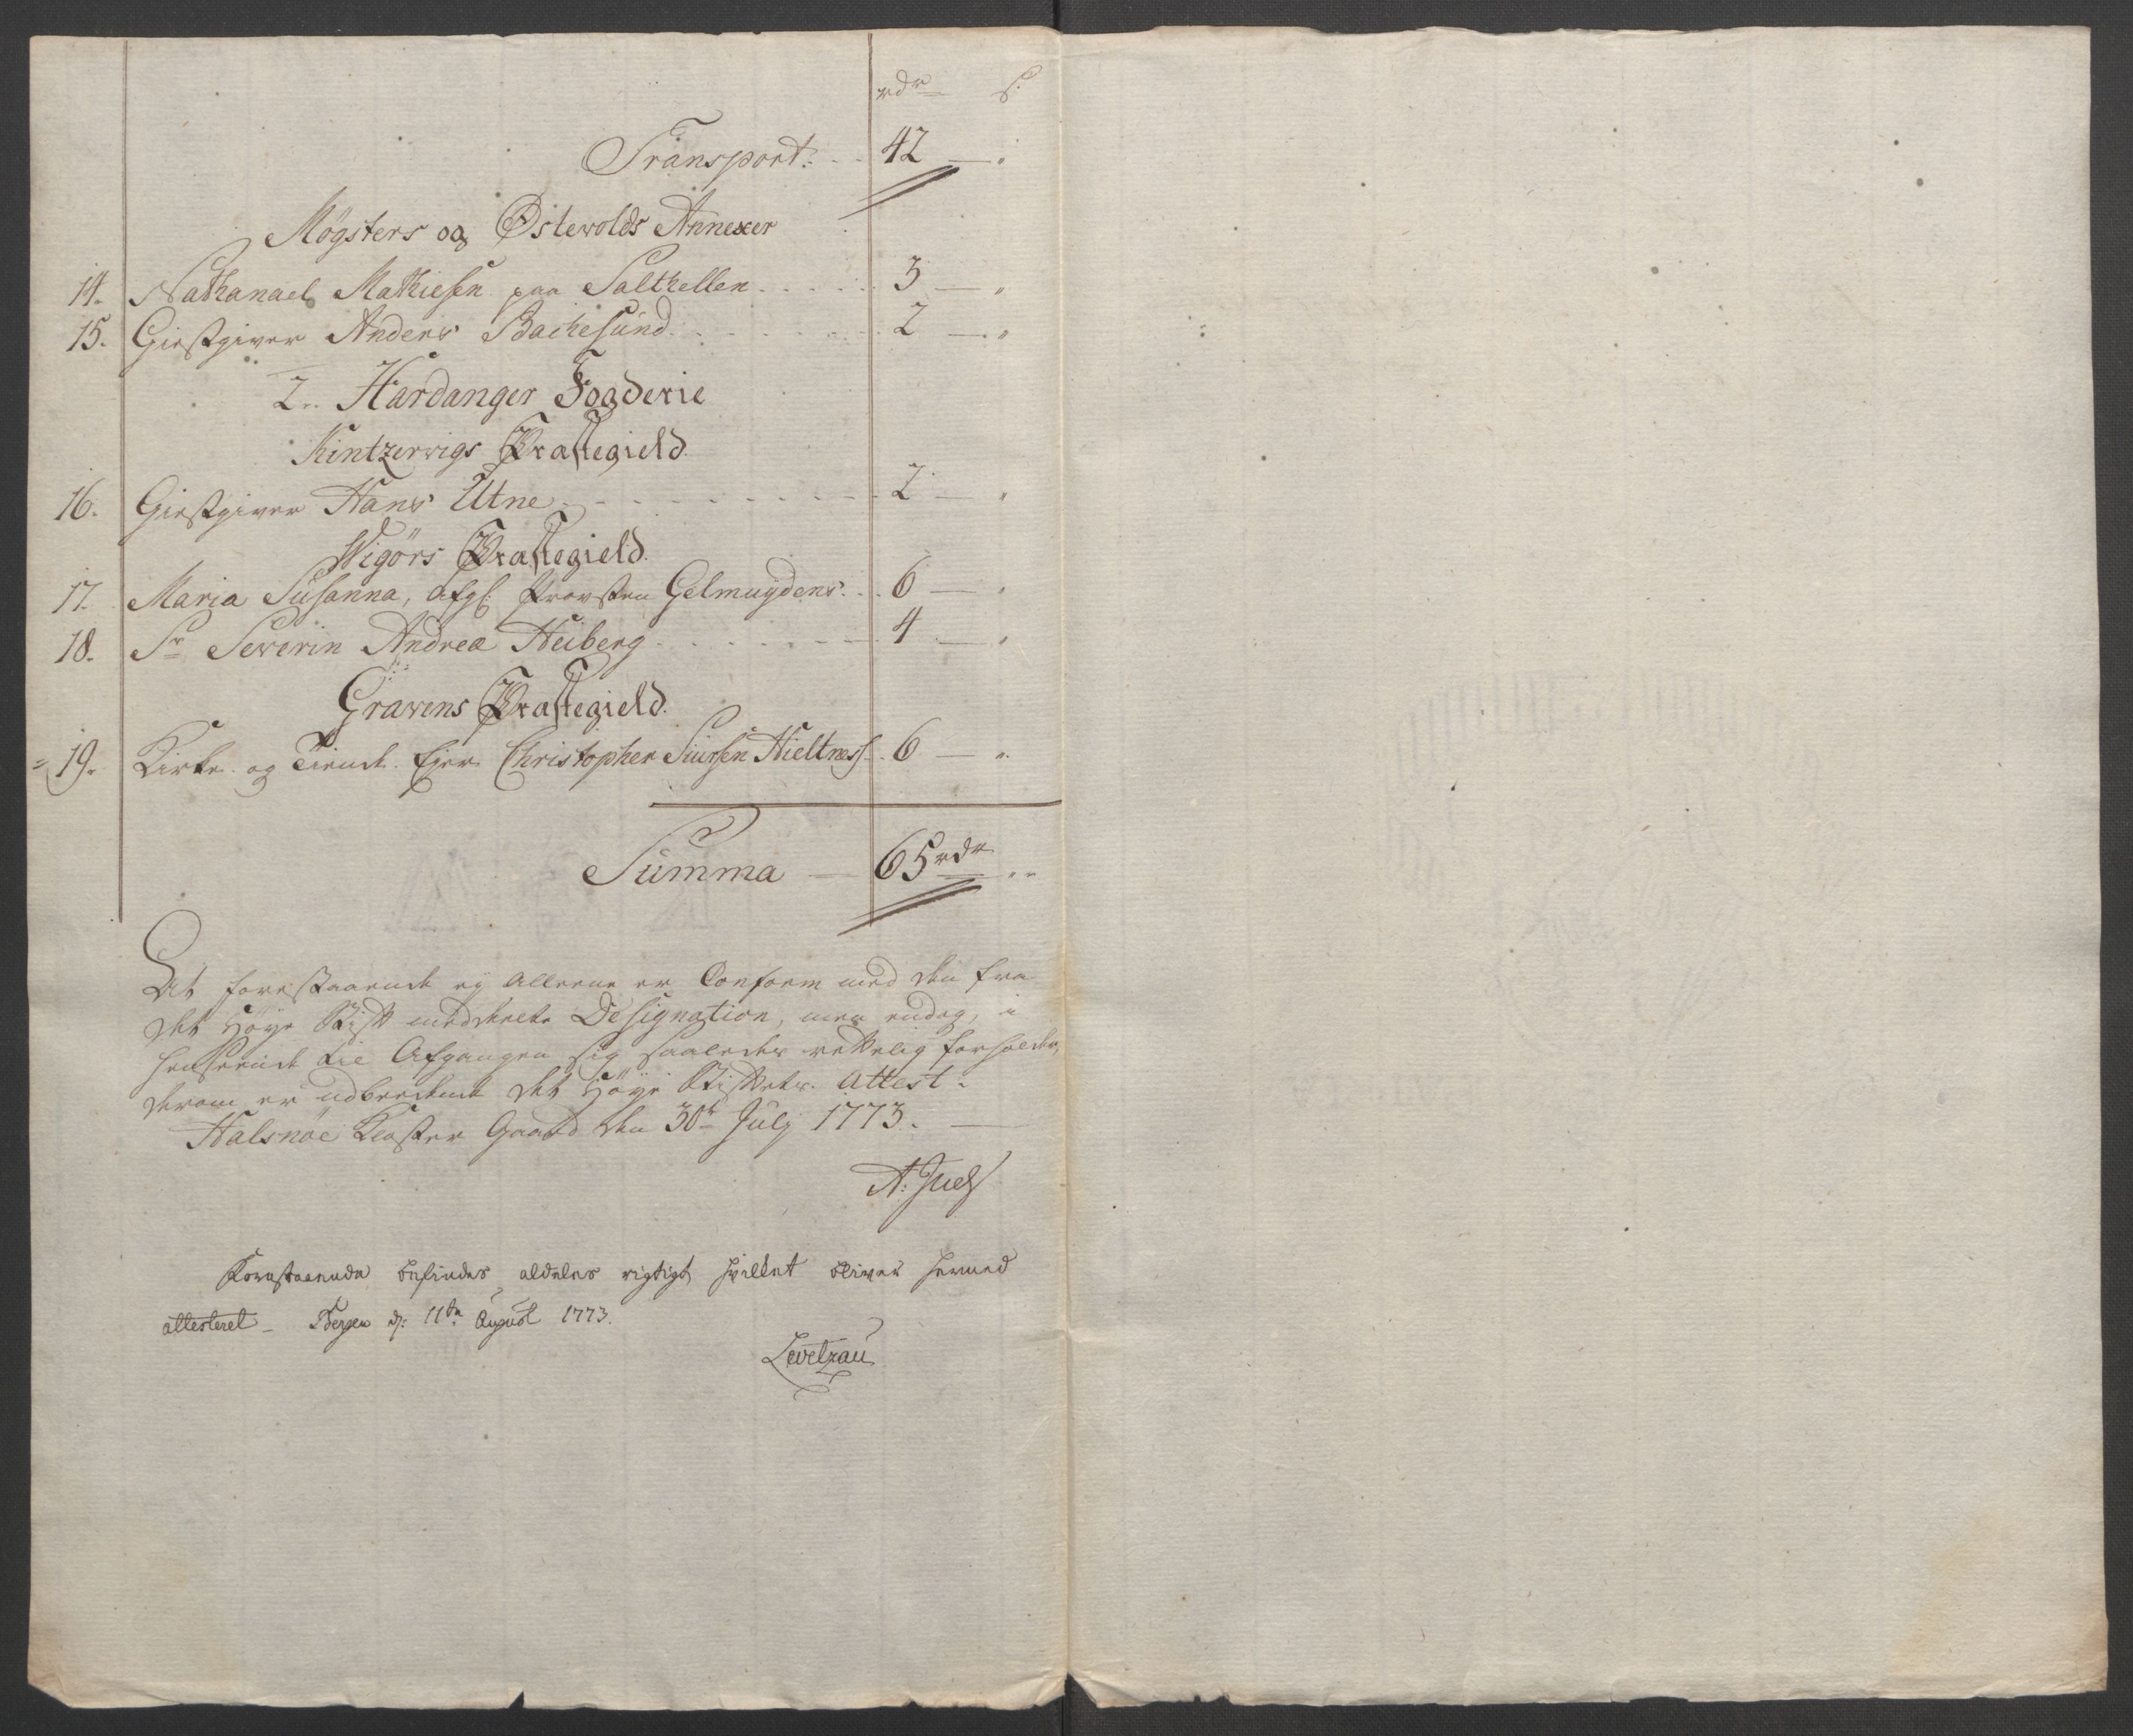 rdr s.
Transport. 42 — "
Møgsters og Østewolds Annexer
14. Nathanael Mathiesen paa Salthellen 3 — "
15. Giestgiver Anders Bachesund 2 — "
2. Hardanger Fogderie
Kintzervigs Præstegield.
16. Giestgiver Hans Utne 2 — "
Wigørs Præstegield.
17. Maria Susanna, afg: Provsten Gelmuydens 6 — "
18. Sr Severin Andrea Heiberg 4 — "
Gravens Præstegield.
19. Kirke og Tiende Ejer Christopher Siursen Hieltness 6 — "
Summa — 65 rdr "
At forestaaende ej alleene er Conform med den fra
det Høye Stift meddeelte Designation, men endog, i
henseende til Afgangen sig saaledes rettelig forholder,
derom er udbeedende det Høye Stiftets Attest.
Halsnøe Closter Gaard den 30t July 1773.
A: Juel
Forestaaende befindes aldeles rigtigt hvilket bliver herved
attesteret – Bergen d: 11te August 1773.
Levetzau